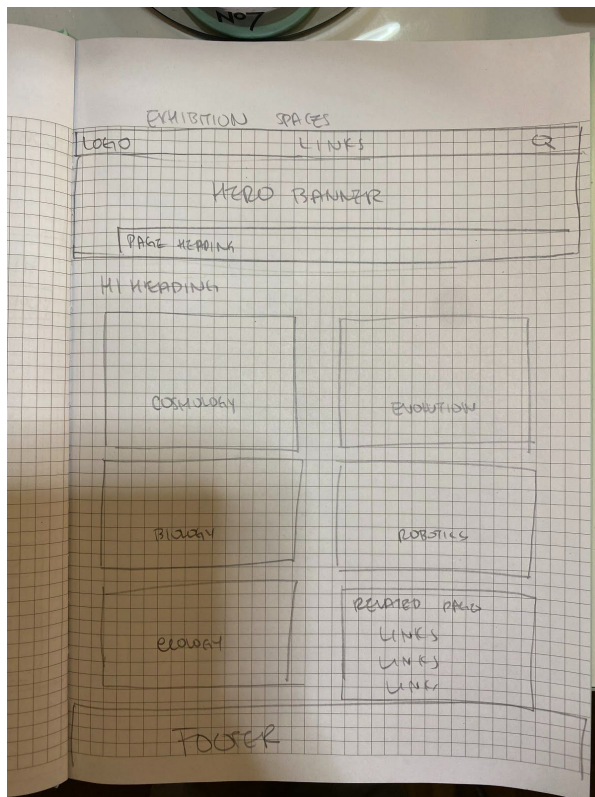 No7
EXHIBITION SPACES
LOGO LINKS
HERO BANNER
PAGE HEADING
H1 HEADING
COSMOLOGY EVOLUTION
BIOLOGY ROBOTICS
ECOLOGY
RELATED PAGES
LINKS
LINKS
LINKS
FOOTER